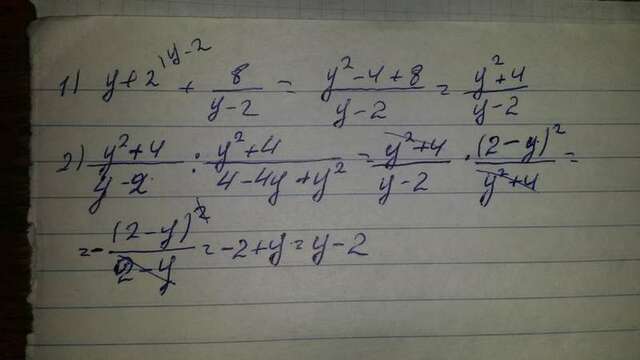 1) y+2 ^{\y-2} + \frac{8}{y-2} = \frac{y^2-4+8}{y-2} = \frac{y^2+4}{y-2}
2) \frac{y^2+4}{y-2} : \frac{y^2+4}{4-4y+y^2} = \frac{y^2+4}{y-2} \cdot \frac{(2-y)^2}{y^2+4} =
= -\frac{(2-y)^2}{2-y} = -2+y = y-2